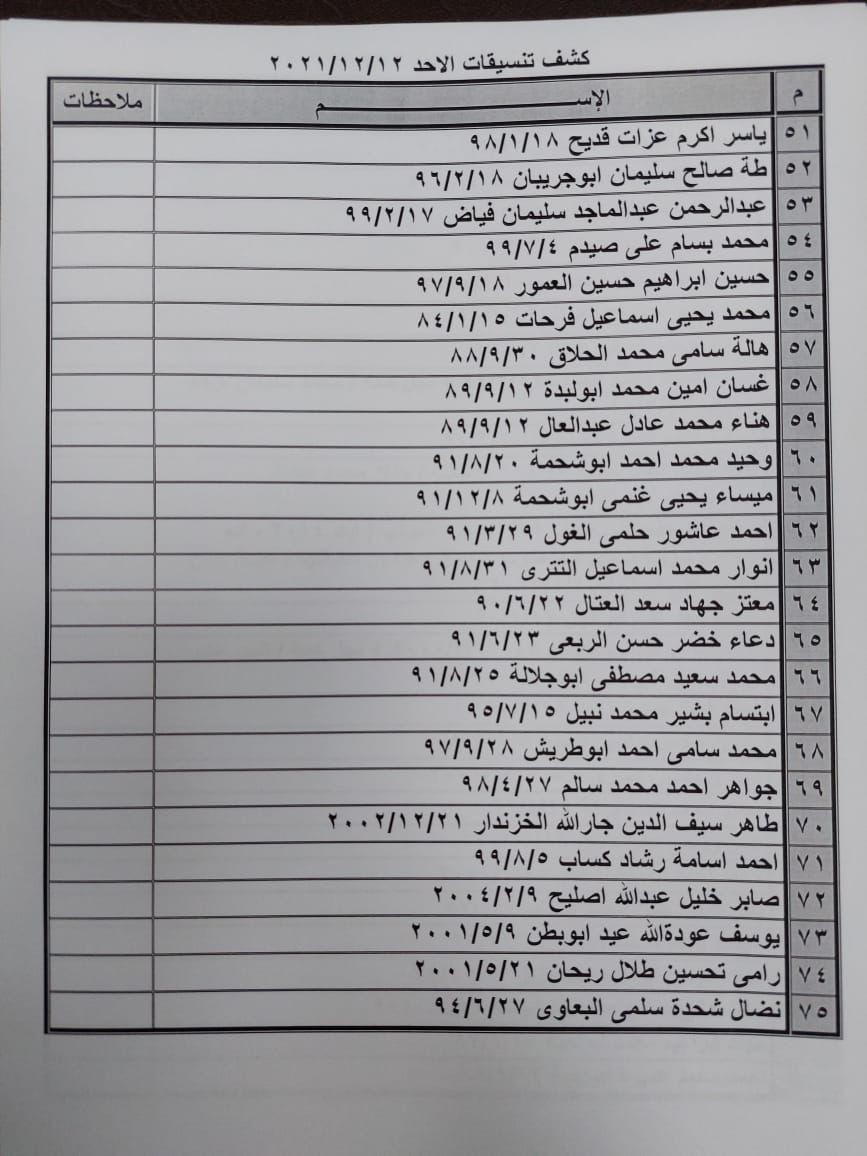 كشف تنسيقات الاحد ٢٠٢١/١٢/١٢
م الإســـم ملاحظات
٥١ ياسر اكرم عزات قديح ٩٨/١/١٨
٥٢ طة صالح سليمان ابوجريبان ٩٦/٢/١٨
٥٣ عبدالرحمن عبدالماجد سليمان فياض ٩٩/٢/١٧
٥٤ محمد بسام على صيدم ٩٩/٧/٤
٥٥ حسين ابراهيم حسين العمور ٩٧/٩/١٨
٥٦ محمد يحيى اسماعيل فرحات ٨٤/١/١٥
٥٧ هالة سامى محمد الحلاق ٨٨/٩/٣٠
٥٨ غسان امين محمد ابولبدة ٨٩/٩/١٢
٥٩ هناء محمد عادل عبدالعال ٨٩/٩/١٢
٦٠ وحيد محمد احمد ابوشحمة ٩١/٨/٢٠
٦١ ميساء يحيى غنمى ابوشحمة ٩١/١٢/٨
٦٢ احمد عاشور حلمى الغول ٩١/٣/٢٩
٦٣ انوار محمد اسماعيل التترى ٩١/٨/٣١
٦٤ معتز جهاد سعد العتال ٩٠/٦/٢٢
٦٥ دعاء خضر حسن الربعى ٩١/٦/٢٣
٦٦ محمد سعيد مصطفى ابوجلالة ٩١/٨/٢٥
٦٧ ابتسام بشير محمد نبيل ٩٥/٧/١٥
٦٨ محمد سامى احمد ابوطريش ٩٧/٩/٢٨
٦٩ جواهر احمد محمد سالم ٩٨/٤/٢٧
٧٠ طاهر سيف الدين جارالله الخزندار ٢٠٠٢/١٢/٢١
٧١ احمد اسامة رشاد كساب ٩٩/٨/٥
٧٢ صابر خليل عبدالله اصليح ٢٠٠٤/٢/٩
٧٣ يوسف عودةالله عيد ابوبطن ٢٠٠١/٥/٩
٧٤ رامى تحسين طلال ريحان ٢٠٠١/٥/٢١
٧٥ نضال شحدة سلمى البعاوى ٩٤/٦/٢٧